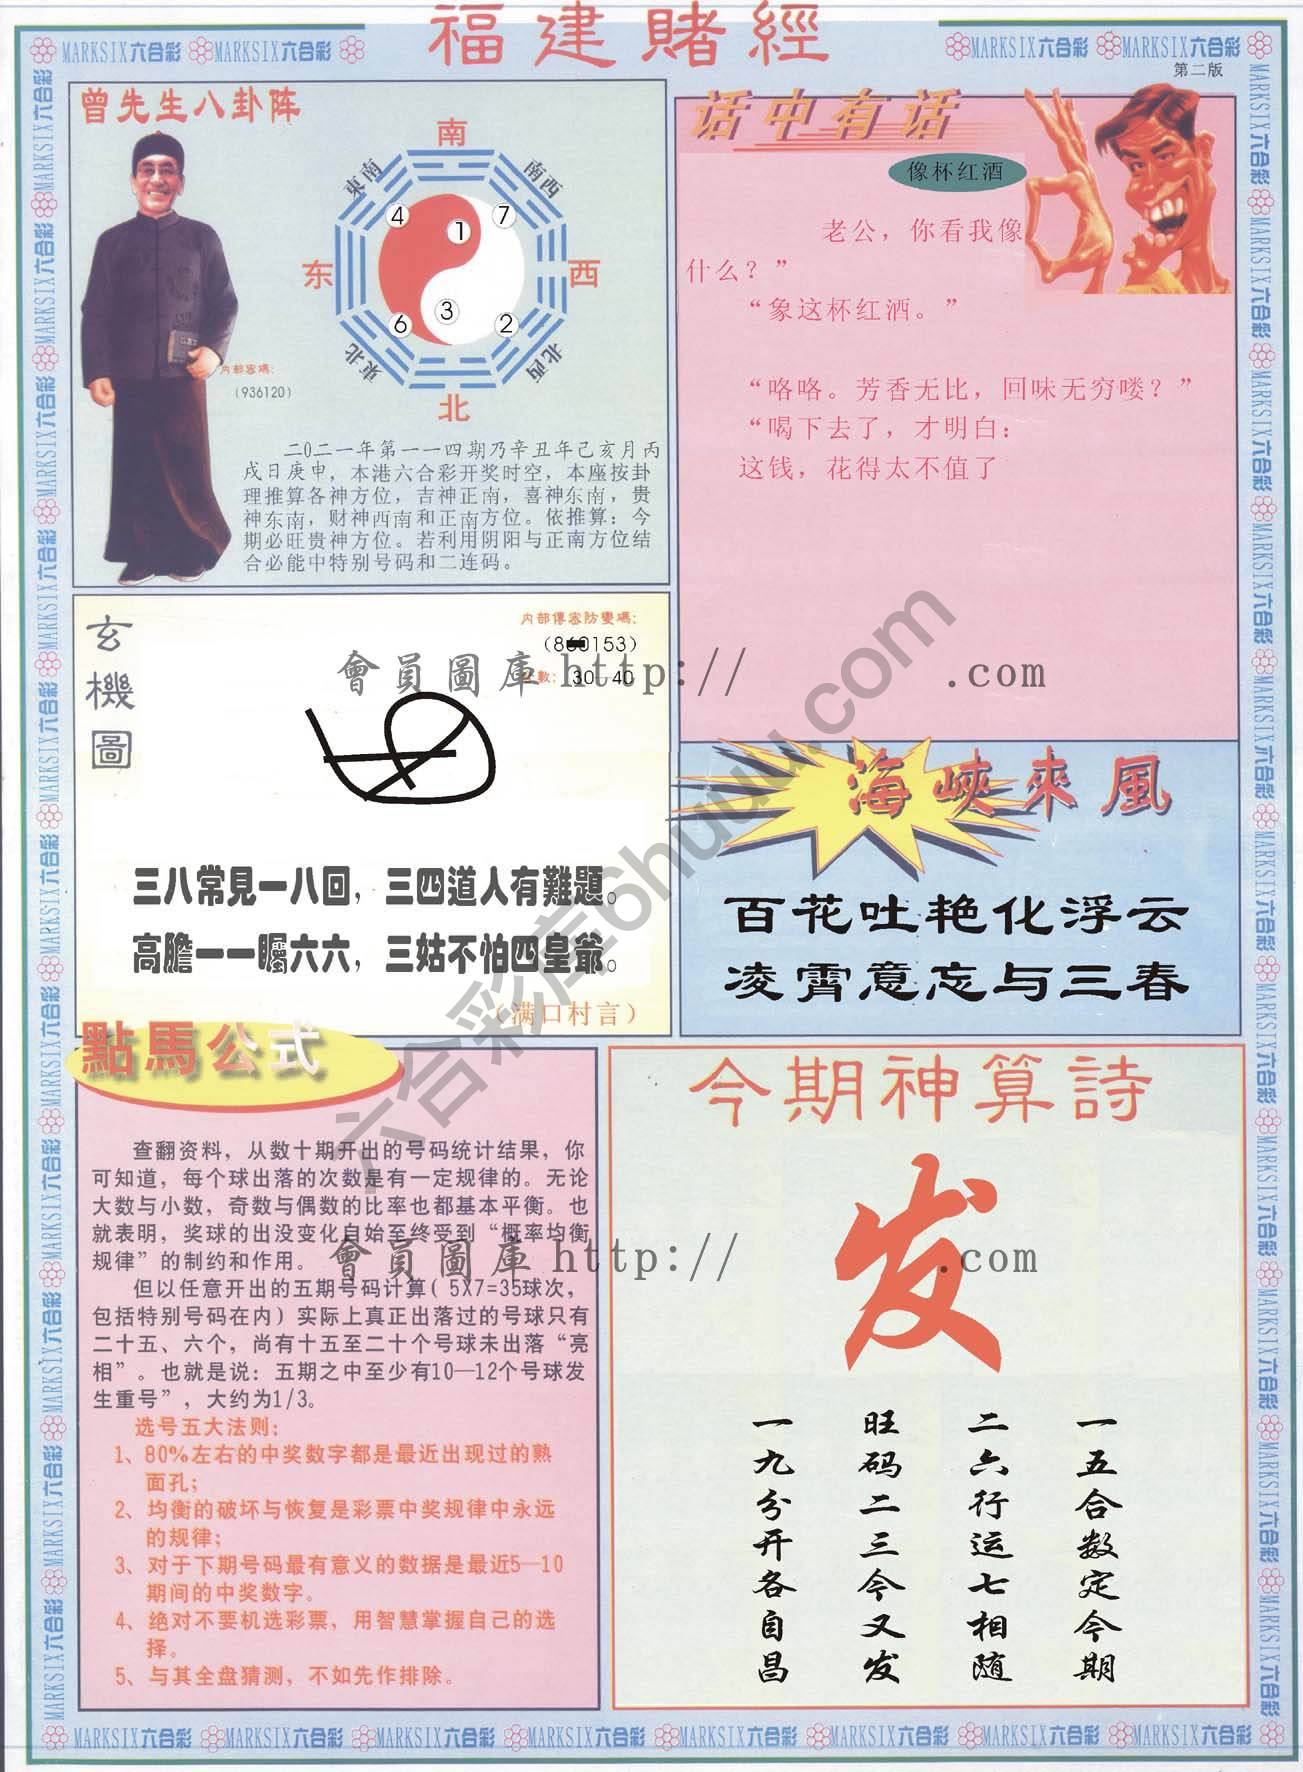 福建賭經
MARKSIX六合彩 MARKSIX六合彩
MARKSIX六合彩 MARKSIX六合彩
第二版
曾先生八卦阵
南
東南
南西
4
7
1
东
西
3
6
2
東北
北西
北
内部密碼:
(936120)
二0二一年第一一四期乃辛丑年己亥月丙
戌日庚申，本港六合彩开奖时空，本座按卦
理推算各神方位，吉神正南，喜神东南，贵
神东南，财神西南和正南方位。依推算：今
期必旺贵神方位。若利用阴阳与正南方位结
合必能中特别号码和二连码。
话中有话
像杯红酒
老公，你看我像
什么？”
“象这杯红酒。”
“咯咯。芳香无比，回味无穷喽？”
“喝下去了，才明白：
这钱，花得太不值了
玄機圖
内部傳密防變碼:
(8 0153)
數: 30-40
會員圖庫 http:// .com
三八常見一八回，三四道人有難題。
高膽一一矚六六，三姑不怕四皇爺。
（满口村言）
海峽來風
百花吐艳化浮云
凌霄意忘与三春
六合彩库6huuu.com
點馬公式
查翻资料，从数十期开出的号码统计结果，你
可知道，每个球出落的次数是有一定规律的。无论
大数与小数，奇数与偶数的比率也都基本平衡。也
就表明，奖球的出没变化自始至终受到“概率均衡
规律”的制约和作用。
但以任意开出的五期号码计算( 5X7=35球次，
包括特别号码在内) 实际上真正出落过的号球只有
二十五、六个，尚有十五至二十个号球未出落“亮
相”。也就是说：五期之中至少有10—12个号球发
生重号”，大约为1/3。
选号五大法则：
1、80%左右的中奖数字都是最近出现过的熟
面孔；
2、均衡的破坏与恢复是彩票中奖规律中永远
的规律；
3、对于下期号码最有意义的数据是最近5—10
期间的中奖数字。
4、绝对不要机选彩票，用智慧掌握自己的选
择。
5、与其全盘猜测，不如先作排除。
會員圖庫 http:// .com
今期神算詩
发
一五合数定今期
二六行运七相随
旺码二三今又发
一九分开各自昌
MARKSIX六合彩 MARKSIX六合彩 MARKSIX六合彩 MARKSIX六合彩 MARKSIX六合彩 MARKSIX六合彩 MARKSIX六合彩 MARKSIX六合彩